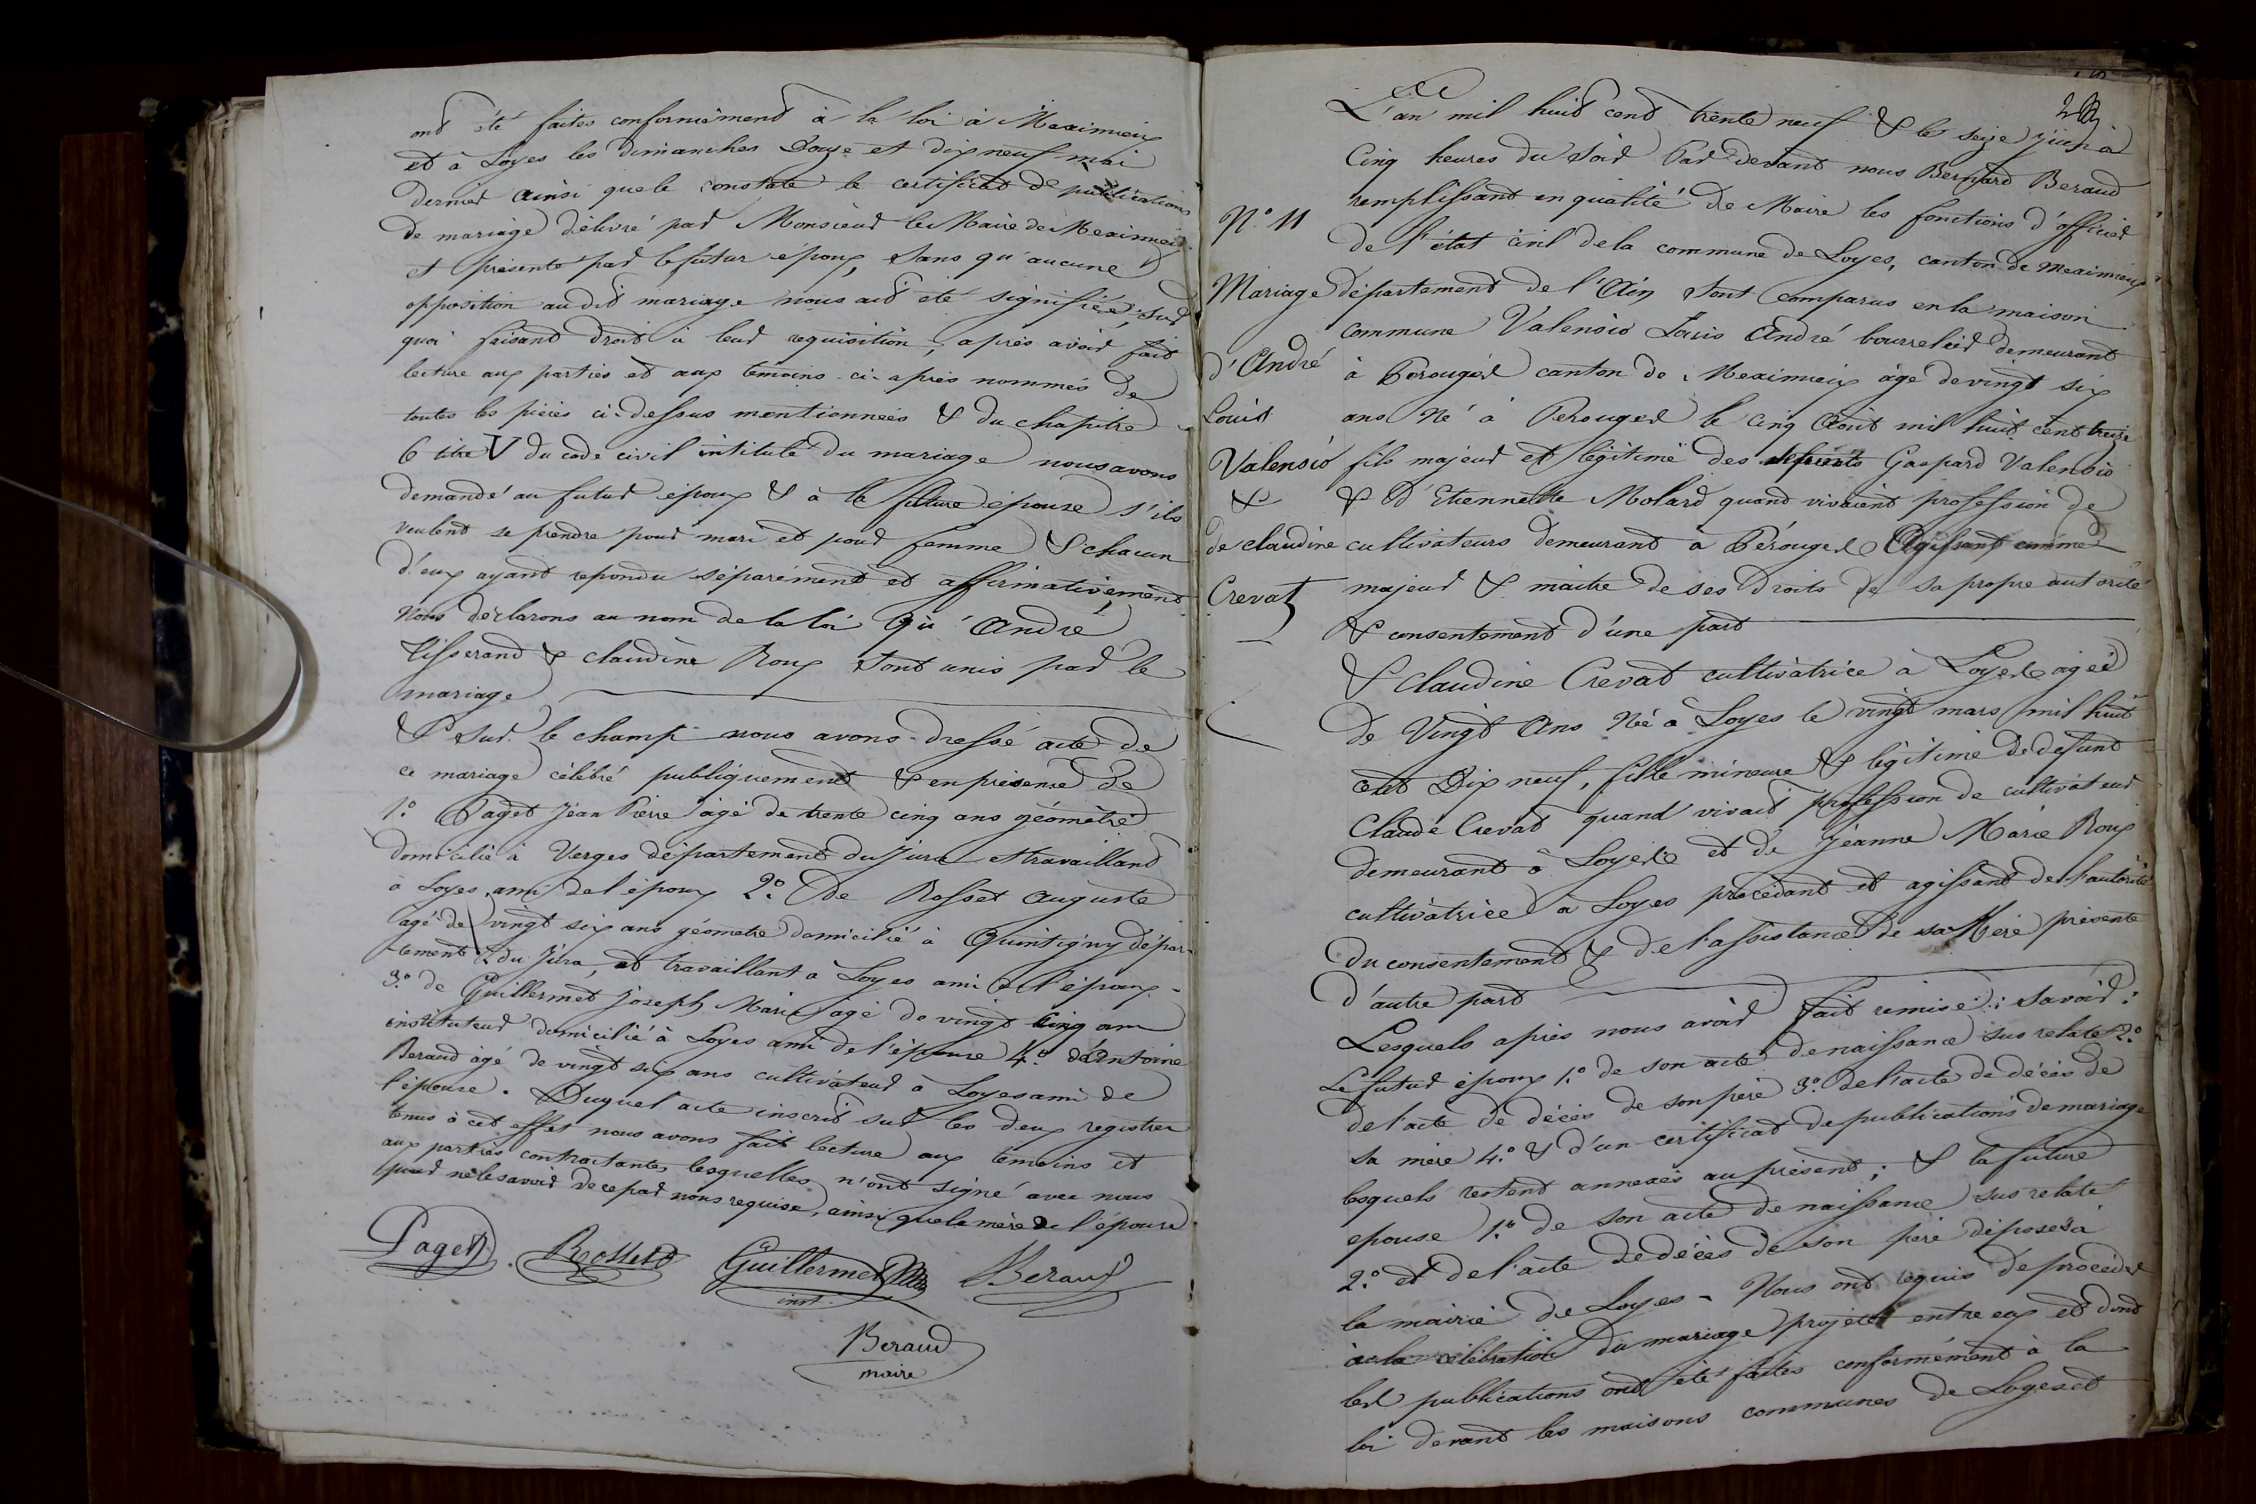 ont été faites conformément à la loi à Meximieux
et à Loyes les dimanches Douze et dix neuf mai
dernier ainsi que le constate le certificat de publications
de mariage délivré par Monsieur le Maire de Meximieux
et présenté par le futur époux, sans qu'aucune
opposition audit mariage nous ait été signifiée, sur
quoi faisant droit à leur requisition, après avoir fait
lecture aux parties et aux témoins ci-après nommés de
toutes les pièces ci-dessus mentionnées & du chapitre
6 titre V du code civil intitulé du mariage nous avons
demandé au futur époux & à la future épouse s'ils
veulent se prendre pour mari et pour femme & chacun
d'eux ayant repondu séparément et affirmativement,
Nous déclarons au nom de la loi qu'André
Tisserand & claudine Roux sont unis par le
mariage
& sur le champ nous avons dressé acte de
ce mariage célébré publiquement & en présence de
1.° Paget Jean Pierre âgé de trente cinq ans géomètre
domicilié à Verges département du Jura et travaillant
à Loyes, ami de l'époux 2.° de Rosset Auguste
agé de vingt six ans géometre domicilié à Quintigny dépar-
-tement du Jura, et travaillant à Loyes ami de l'époux -
3.° de Guillermet Joseph Marie âgé de vingt cinq ans
instituteur domicilié à Loyes ami de l'épouse 4.° d'Antoine
Beraud âgé de vingt six ans cultivateur à Loyes ami de
l'épouse. Duquel acte inscrit sur les deux registres
tenus à cet effet nous avons fait lecture aux témoins et
aux parties contractantes lesquelles n'ont signé avec nous
pour ne le savoir de ce par nous requise, ainsi que la mère de l'épouse
Paget. Rosset Guillermet Beraud
inst.
Beraud
maire
28
L'an mil huit cent trente neuf & le seize juin à
Cinq heures du soir Par devant nous Bernard Beraud
remplissant en qualité de Maire les fonctions d'officier
N.° 11
de l'état civil de la commune de Loyes, canton de Meximieux
Mariage département de l'Ain sont comparus en la maison
commune Valensio Louis André bourrelier demeurant
d'André à Pérouges canton de Meximieux âgé de vingt six
Louis ans Né à Perouges le cinq Août mil huit cent treize
Valensio fils majeur et légitime des défunts Gaspard Valensio
& & d'Etiennette Molard quand vivaient profession de
de claudine cultivateurs demeurant à Pérouges Agissant comme
Crevat majeur & maître de ses droits de sa propre autorité
& consentement d'une part
& Claudine Crevat cultivatrice à Loyes agée
de Vingt Ans Née à Loyes le vingt mars mil huit
cent Dix neuf, fille mineure & légitime de defunt
Claude Crevat quand vivait profession de cultivateur
demeurant à Loyes et de Jeanne Marie Roux
cultivatrice à Loyes procédant et agissant de l'autorité
du consentement & de l'assistance de sa Mère présente
d'autre part
Lesquels après nous avoir fait remise : savoir :
Le futur époux 1.° de son acte de naissance sus relaté 2.°
de l'acte de décès de son père 3.° de l'acte de décès de
sa mère 4.° & d'un certificat de publications de mariage
lesquels restent annexés au présent ; & la future
epouse 1.° de son acte de naissance sus relaté
2.° et de l'acte de décès de son père déposés à
la mairie de Loyes - Nous ont requis de procéder
à la célébration du mariage projeté entre eux et dont
les publications ont été faites conformément à la
loi devant les maisons communes de Loyes et